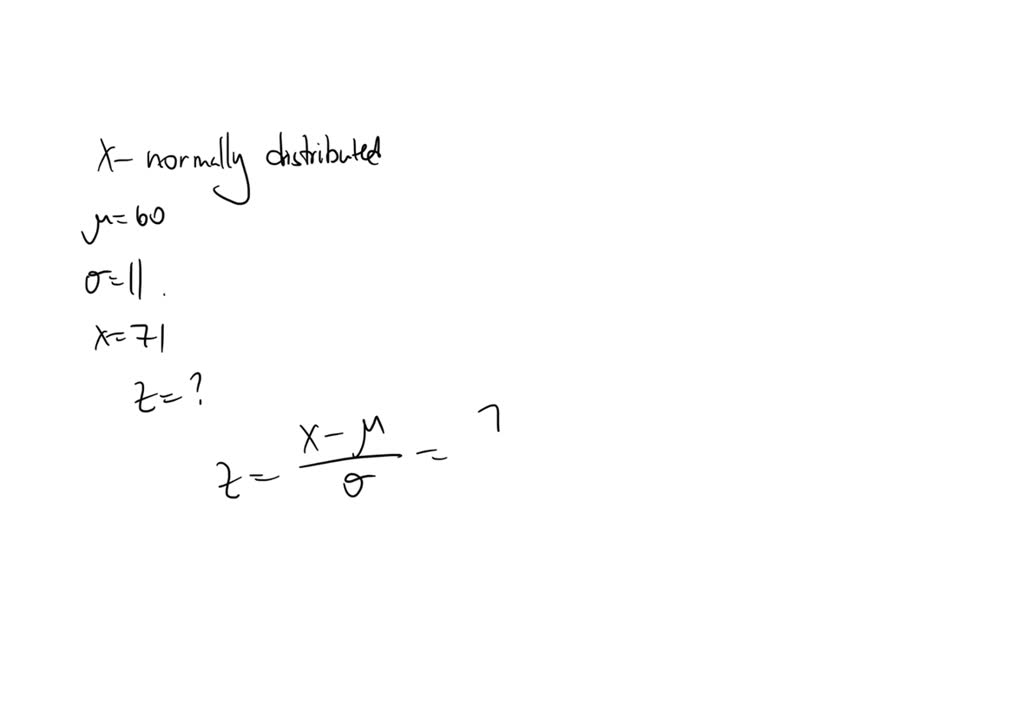 X- normally distributed
μ=60
σ=11.
x=71
z=?
z= (x-μ)/σ = 7